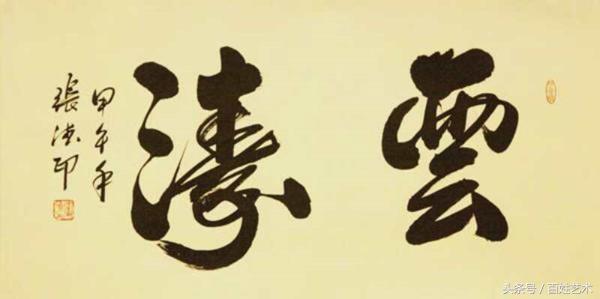 雲濤
甲午年
張德印
头条号／百姓艺术